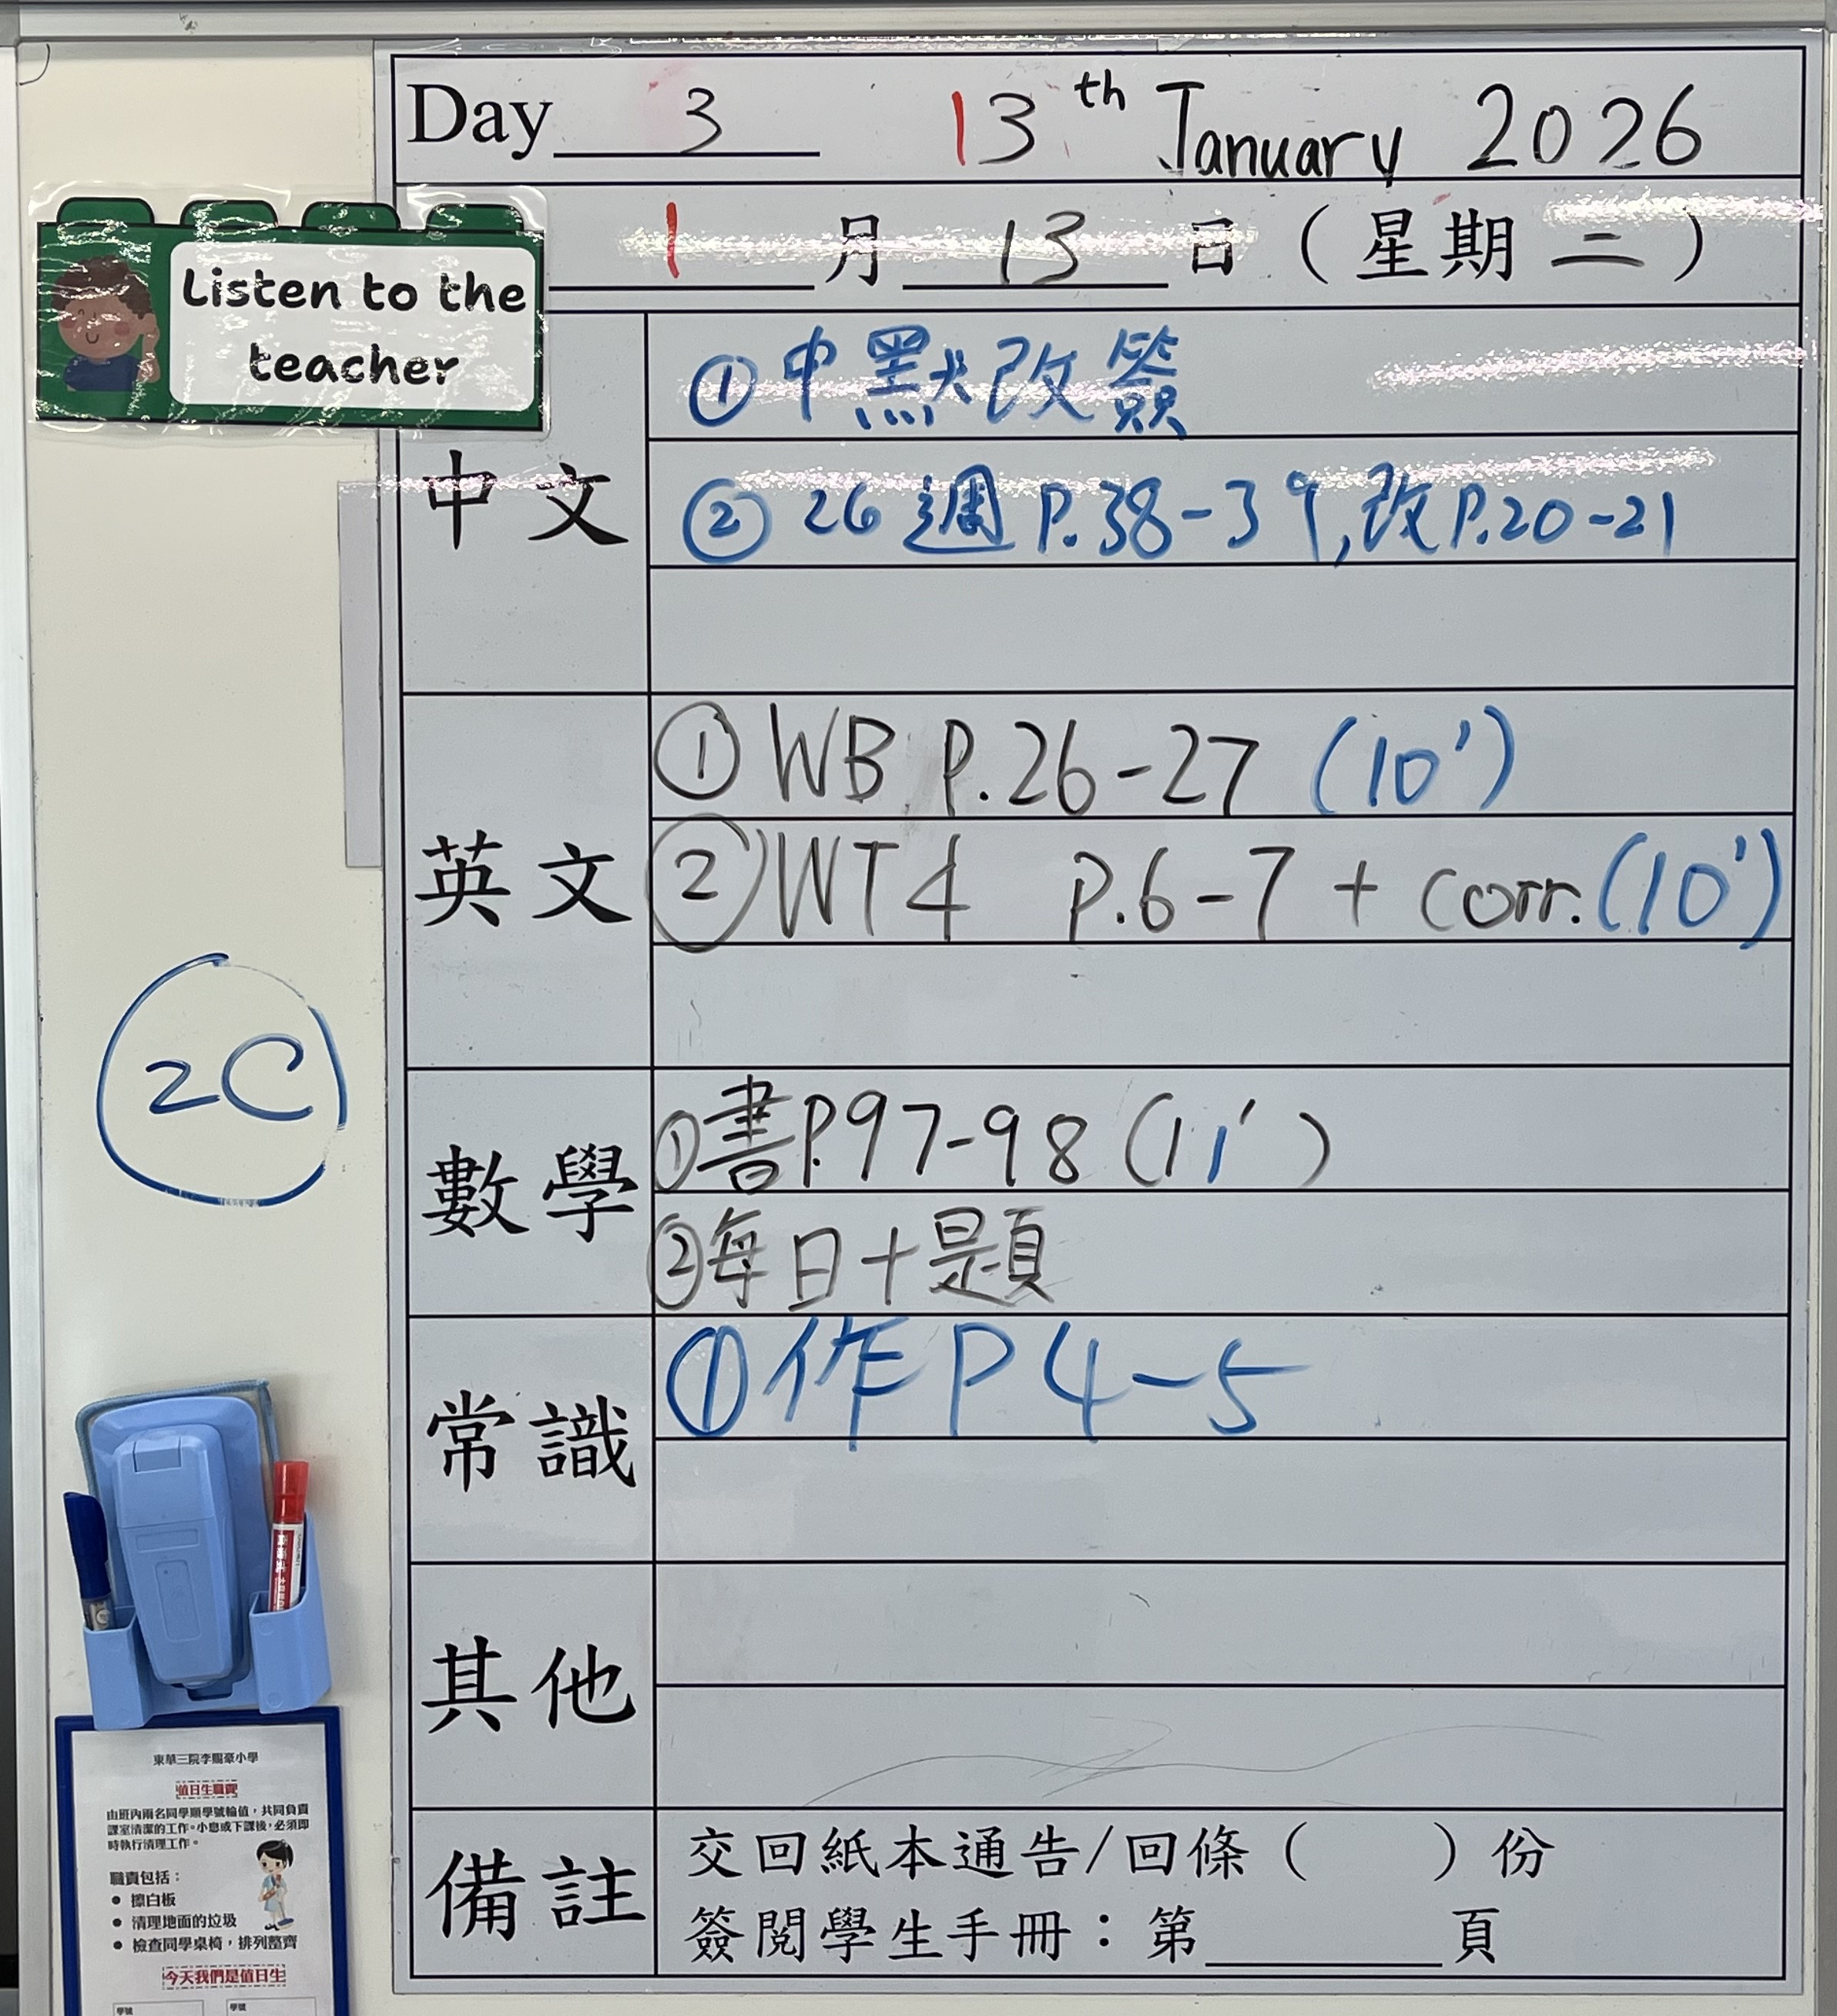 Day 3 13th January 2026
1月13日（星期二）
Listen to the
teacher
中文
①中默改簽
②26週P.38-39,改P.20-21
英文
①WB P.26-27 (10')
②WT4 P.6-7 + corr.(10')
2C
數學
①書P.97-98 (11')
②每日十題
常識
①作P4-5
其他
備註
交回紙本通告/回條（　　）份
簽閱學生手冊：第______頁
東華三院李賜豪小學
值日生職責
由班內兩名同學順學號輪值，共同負責
課室清潔的工作。小息或下課後，必須即
時執行清理工作。
職責包括：
● 擦白板
● 清理地面的垃圾
● 檢查同學桌椅，排列整齊
今天我們是值日生
學號 學號